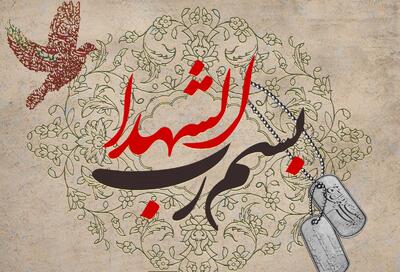 بسم رب
الشهدا